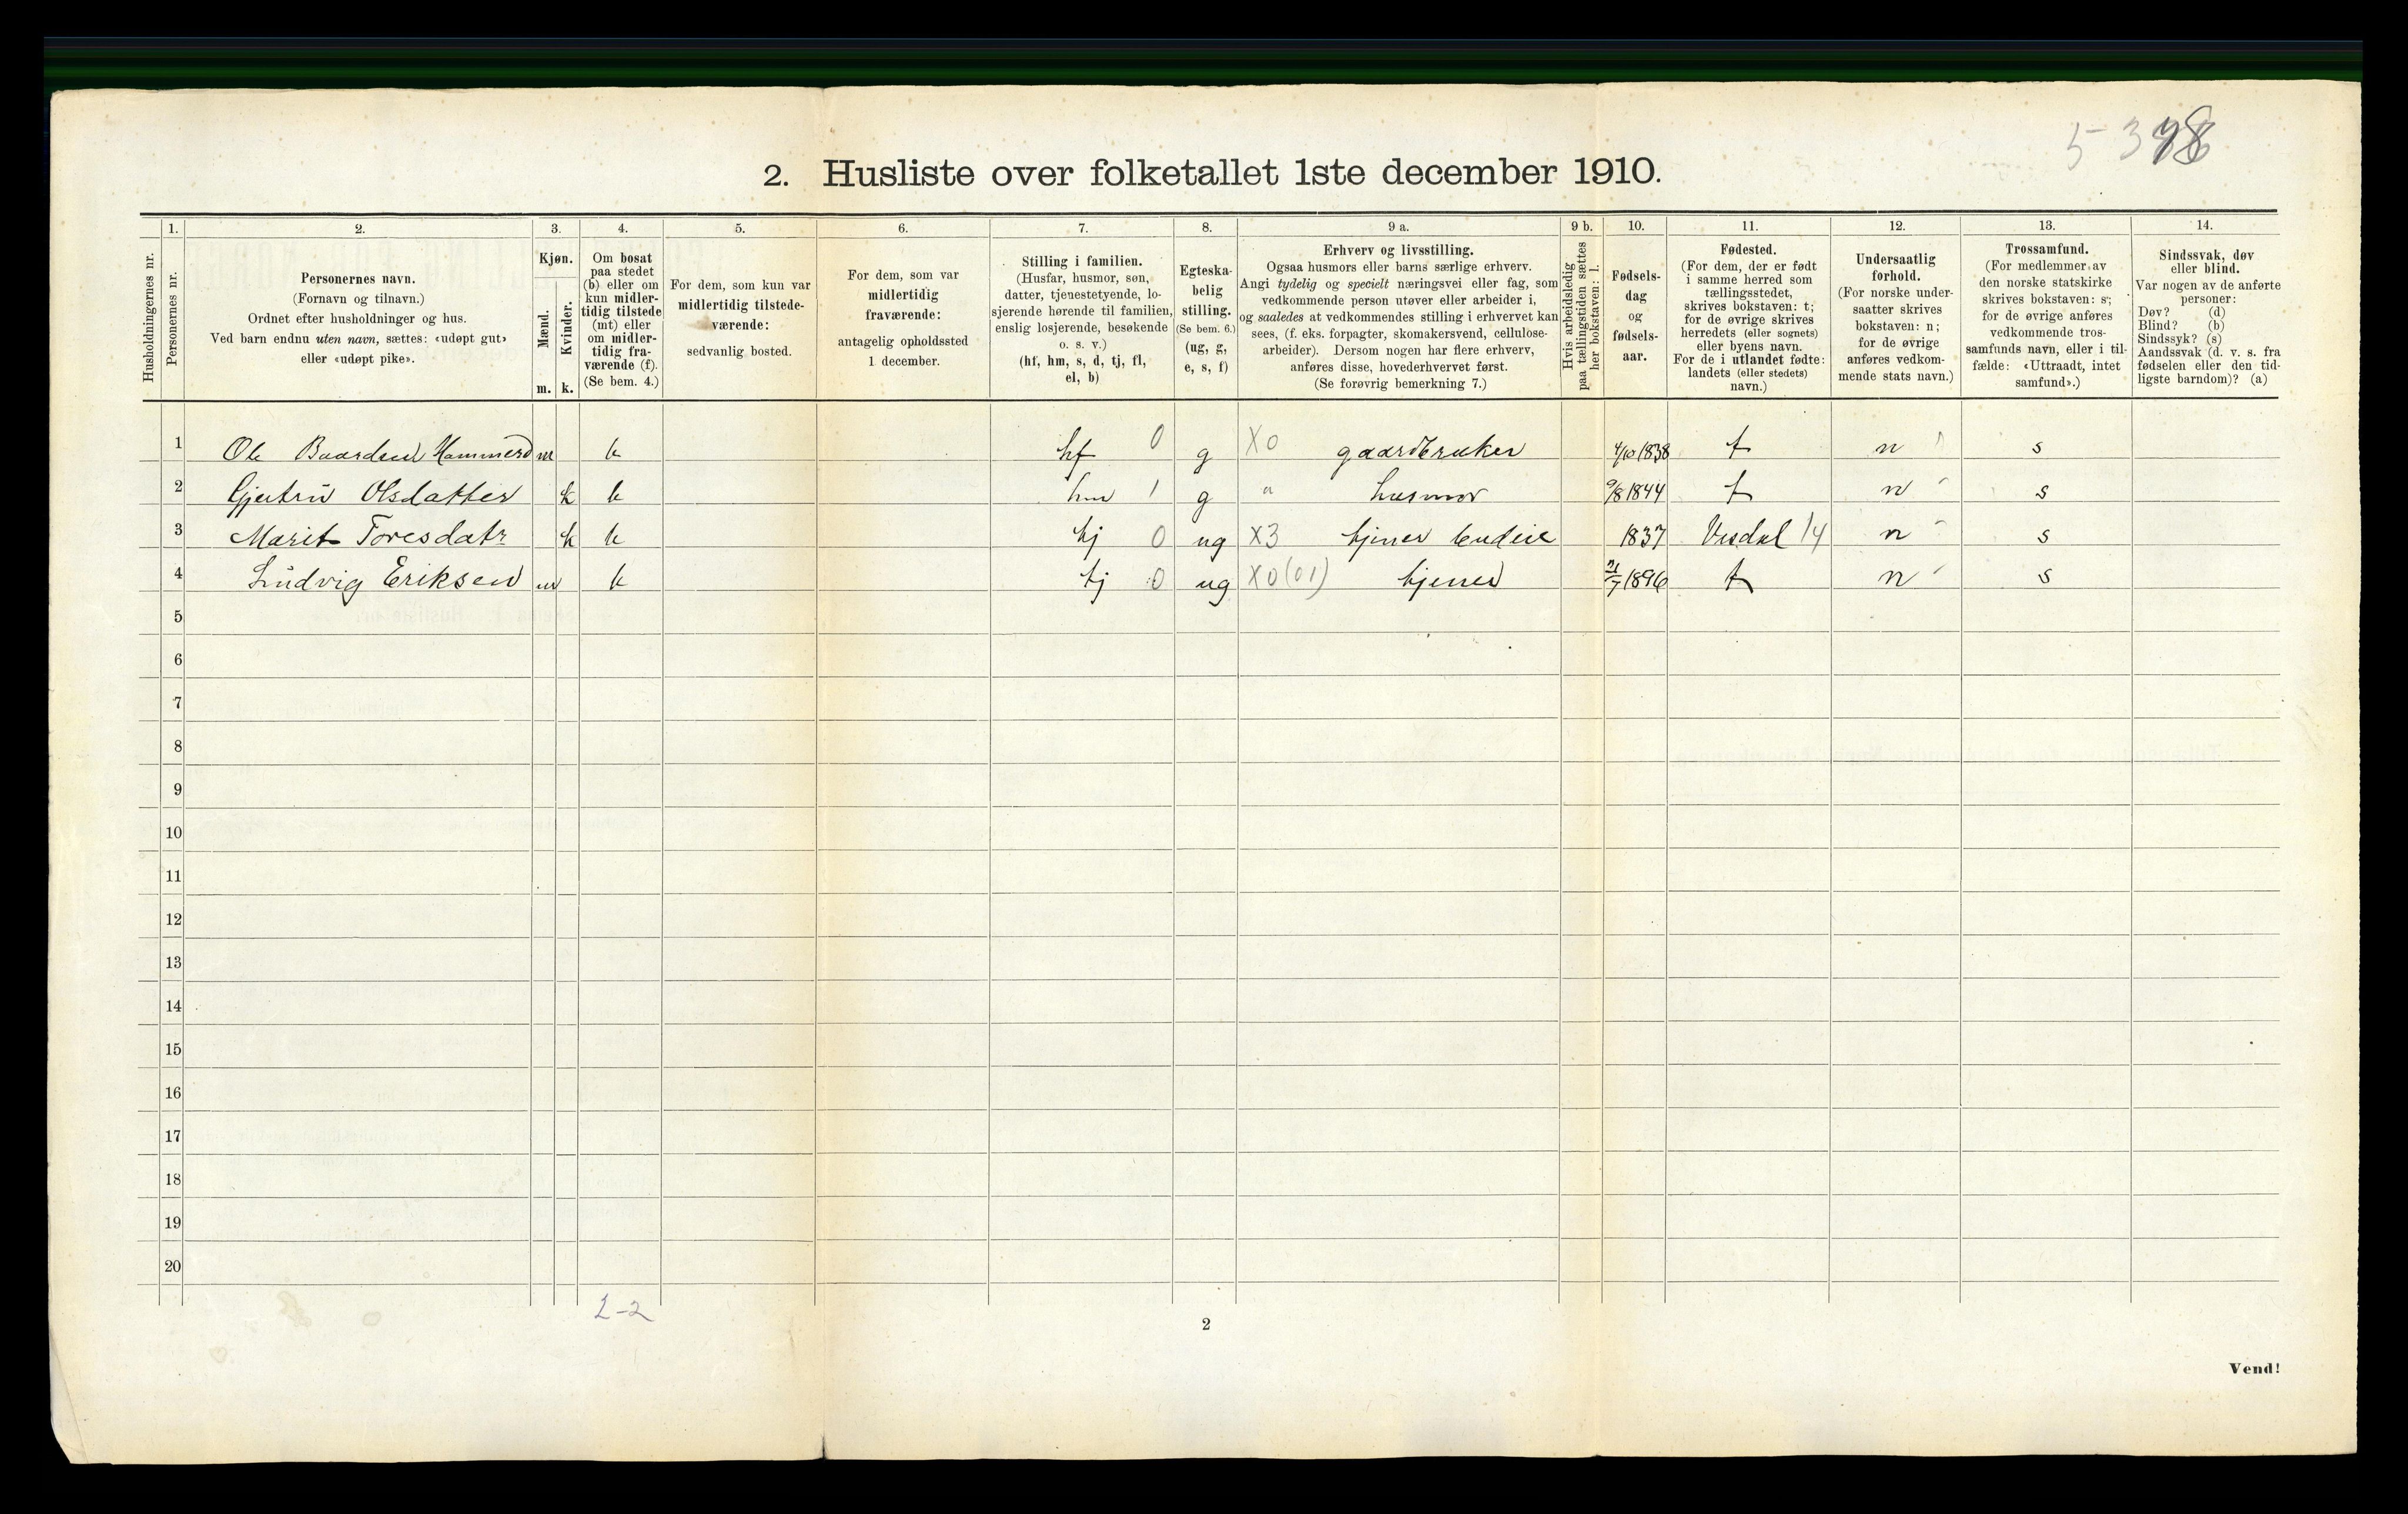 5-378
2. Husliste over folketallet 1ste december 1910.
1. 2. 3. 4. 5. 6. 7. 8. 9 a. 9 b. 10. 11. 12. 13. 14.
Husholdningernes nr.
Personernes nr.
Personernes navn.
(Fornavn og tilnavn.)
Ordnet efter husholdninger og hus.
Ved barn endnu uten navn, sættes: «udøpt gut»
eller «udøpt pike».
Kjøn.
Mænd.
m.
Kvinder.
k.
Om bosat
paa stedet
(b) eller om
kun midler-
tidig tilstede
(mt) eller
om midler-
tidig fra-
værende (f).
(Se bem. 4.)
For dem, som kun var
midlertidig tilstede-
værende:
sedvanlig bosted.
For dem, som var
midlertidig
fraværende:
antagelig opholdssted
1 december.
Stilling i familien.
(Husfar, husmor, søn,
datter, tjenestetyende, lo-
sjerende hørende til familien,
enslig losjerende, besøkende
o. s. v.)
(hf, hm, s, d, tj, fl,
el, b)
Egteska-
belig
stilling.
(Se bem. 6.)
(ug, g,
e, s, f)
Erhverv og livsstilling.
Ogsaa husmors eller barns særlige erhverv.
Angi tydelig og specielt næringsvei eller fag, som
vedkommende person utøver eller arbeider i,
og saaledes at vedkommendes stilling i erhvervet kan
sees, (f. eks. forpagter, skomakersvend, cellulose-
arbeider). Dersom nogen har flere erhverv,
anføres disse, hovederhvervet først.
(Se forøvrig bemerkning 7.)
Hvis arbeidsledig
paa tællingstiden sættes
her bokstaven: l.
Fødsels-
dag
og
fødsels-
aar.
Fødested.
(For dem, der er født
i samme herred som
tællingsstedet,
skrives bokstaven: t;
for de øvrige skrives
herredets (eller sognets)
eller byens navn.
For de i utlandet fødte:
landets (eller stedets)
navn.)
Undersaatlig
forhold.
(For norske under-
saatter skrives
bokstaven: n;
for de øvrige
anføres vedkom-
mende stats navn.)
Trossamfund.
(For medlemmer av
den norske statskirke
skrives bokstaven: s;
for de øvrige anføres
vedkommende tros-
samfunds navn, eller i til-
fælde: «Uttraadt, intet
samfund».)
Sindssvak, døv
eller blind.
Var nogen av de anførte
personer:
Døv? (d)
Blind? (b)
Sindssyk? (s)
Aandssvak (d. v. s. fra
fødselen eller den tid-
ligste barndom)? (a)
1 Ole Baardsen m b hf 0 g X0 gaardbruker 4/10 1838 t n s
2 Gjertru Olsdatter k b hm 1 g " husmor 9/8 1844 t n s
3 Marit Toresdatr k b tj 0 ug X3 tjener budeie 1837 14 n s
4 Ludvig Eriksen m b tj 0 ug X0 (01) tjener 21/7 1896 t n s
5
6
7
8
9
10
11
12
13
14
15
16
17
18
19
20
2-2
2
Vend!